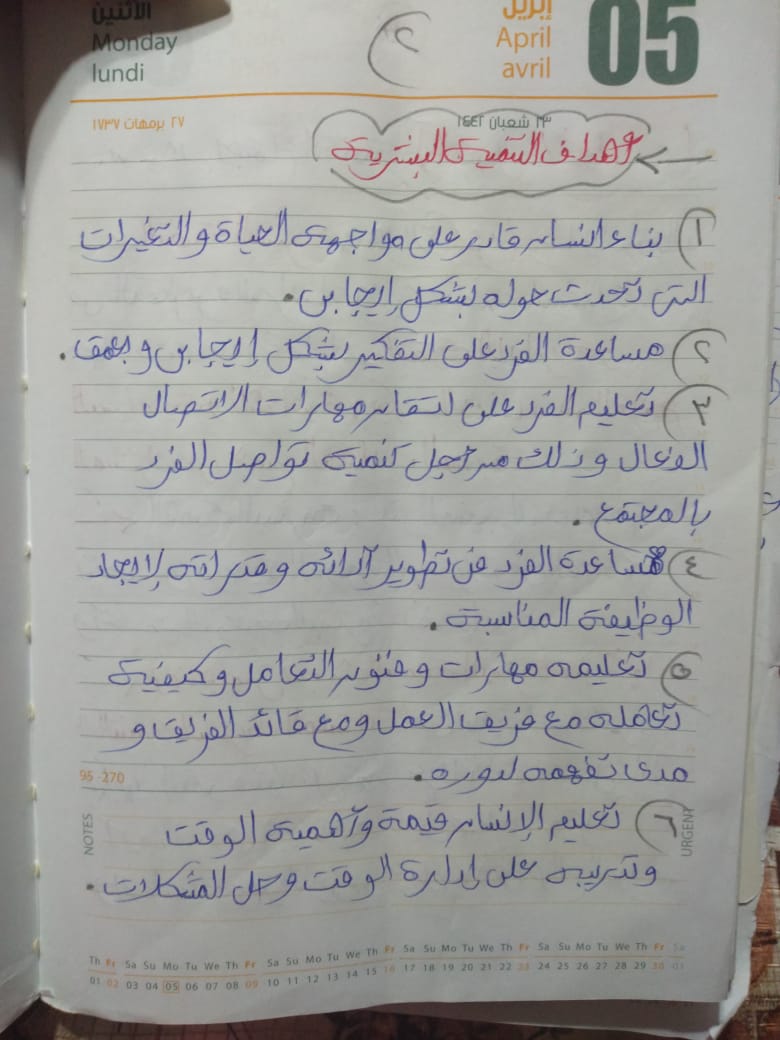 الاثنين
Monday
lundi
٢
إبريل
April
avril
05
٢٧ برمهات ١٧٣٧
٢٣ شعبان ١٤٤٢
أهداف التنمية البشرية
١ بناء انسان قادر على مواجهة الحياة والتغيرات
التى تحدث حوله بشكل إيجابى.
٢ مساعدة الفرد على التفكير بشكل إيجابى وبعمق.
٣ تعليم الفرد على اتقان مهارات الاتصال
الفعال وذلك من أجل تنمية تواصل الفرد
بالمجتمع.
٤ مساعدة الفرد فى تطوير آدائه وقدراته لإيجاد
الوظيفة المناسبة.
٥ تعليمه مهارات وفنون التعامل وكيفية
تعامله مع فريق العمل ومع قائد الفريق و
مدى تفهمه لدوره.
95 -270
٦ تعليم الإنسان قيمة وآهمية الوقت
وتدريبه على إدارة الوقت وحل المشكلات.
NOTES
URGENT
Th Fr Sa Su Mo Tu We Th Fr Sa Su Mo Tu We Th Fr Sa Su Mo Tu We Th Fr Sa Su Mo Tu We Th Fr Sa
01 02 03 04 05 06 07 08 09 10 11 12 13 14 15 16 17 18 19 20 21 22 23 24 25 26 27 28 29 30 01